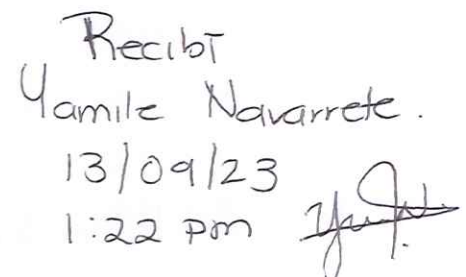 Recibí
Yamile Navarrete.
13/09/23
1:22 pm